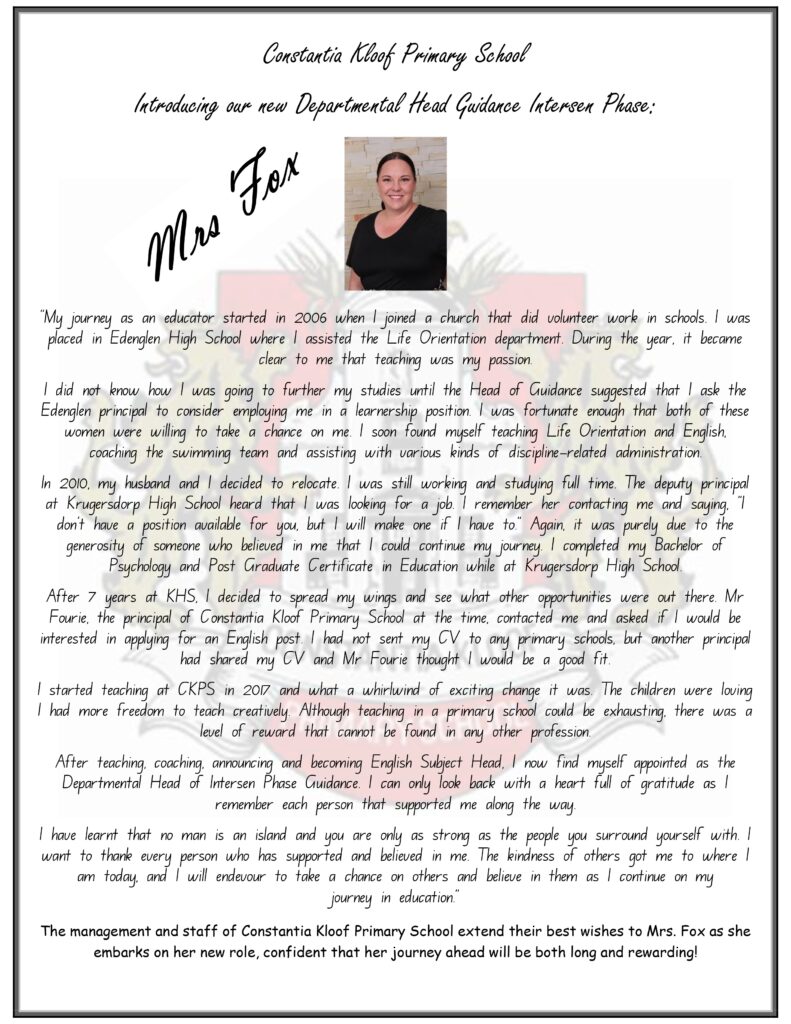 Constantia Kloof Primary School
Introducing our new Departmental Head Guidance Intersen Phase:
Mrs Fox
"My journey as an educator started in 2006 when I joined a church that did volunteer work in schools. I was
placed in Edenglen High School where I assisted the Life Orientation department. During the year, it became
clear to me that teaching was my passion.
I did not know how I was going to further my studies until the Head of Guidance suggested that I ask the
Edenglen principal to consider employing me in a learnership position. I was fortunate enough that both of these
women were willing to take a chance on me. I soon found myself teaching Life Orientation and English,
coaching the swimming team and assisting with various kinds of discipline-related administration.
In 2010, my husband and I decided to relocate. I was still working and studying full time. The deputy principal
at Krugersdorp High School heard that I was looking for a job. I remember her contacting me and saying, "I
don't have a position available for you, but I will make one if I have to." Again, it was purely due to the
generosity of someone who believed in me that I could continue my journey. I completed my Bachelor of
Psychology and Post Graduate Certificate in Education while at Krugersdorp High School.
After 7 years at KHS, I decided to spread my wings and see what other opportunities were out there. Mr
Fourie, the principal of Constantia Kloof Primary School at the time, contacted me and asked if I would be
interested in applying for an English post. I had not sent my CV to any primary schools, but another principal
had shared my CV and Mr Fourie thought I would be a good fit.
I started teaching at CKPS in 2017 and what a whirlwind of exciting change it was. The children were loving
I had more freedom to teach creatively. Although teaching in a primary school could be exhausting, there was a
level of reward that cannot be found in any other profession.
After teaching, coaching, announcing and becoming English Subject Head, I now find myself appointed as the
Departmental Head of Intersen Phase Guidance. I can only look back with a heart full of gratitude as I
remember each person that supported me along the way.
I have learnt that no man is an island and you are only as strong as the people you surround yourself with. I
want to thank every person who has supported and believed in me. The kindness of others got me to where I
am today, and I will endevour to take a chance on others and believe in them as I continue on my
journey in education."
The management and staff of Constantia Kloof Primary School extend their best wishes to Mrs. Fox as she
embarks on her new role, confident that her journey ahead will be both long and rewarding!
CONSTANTIA KLOOF
PRIMARY SCHOOL